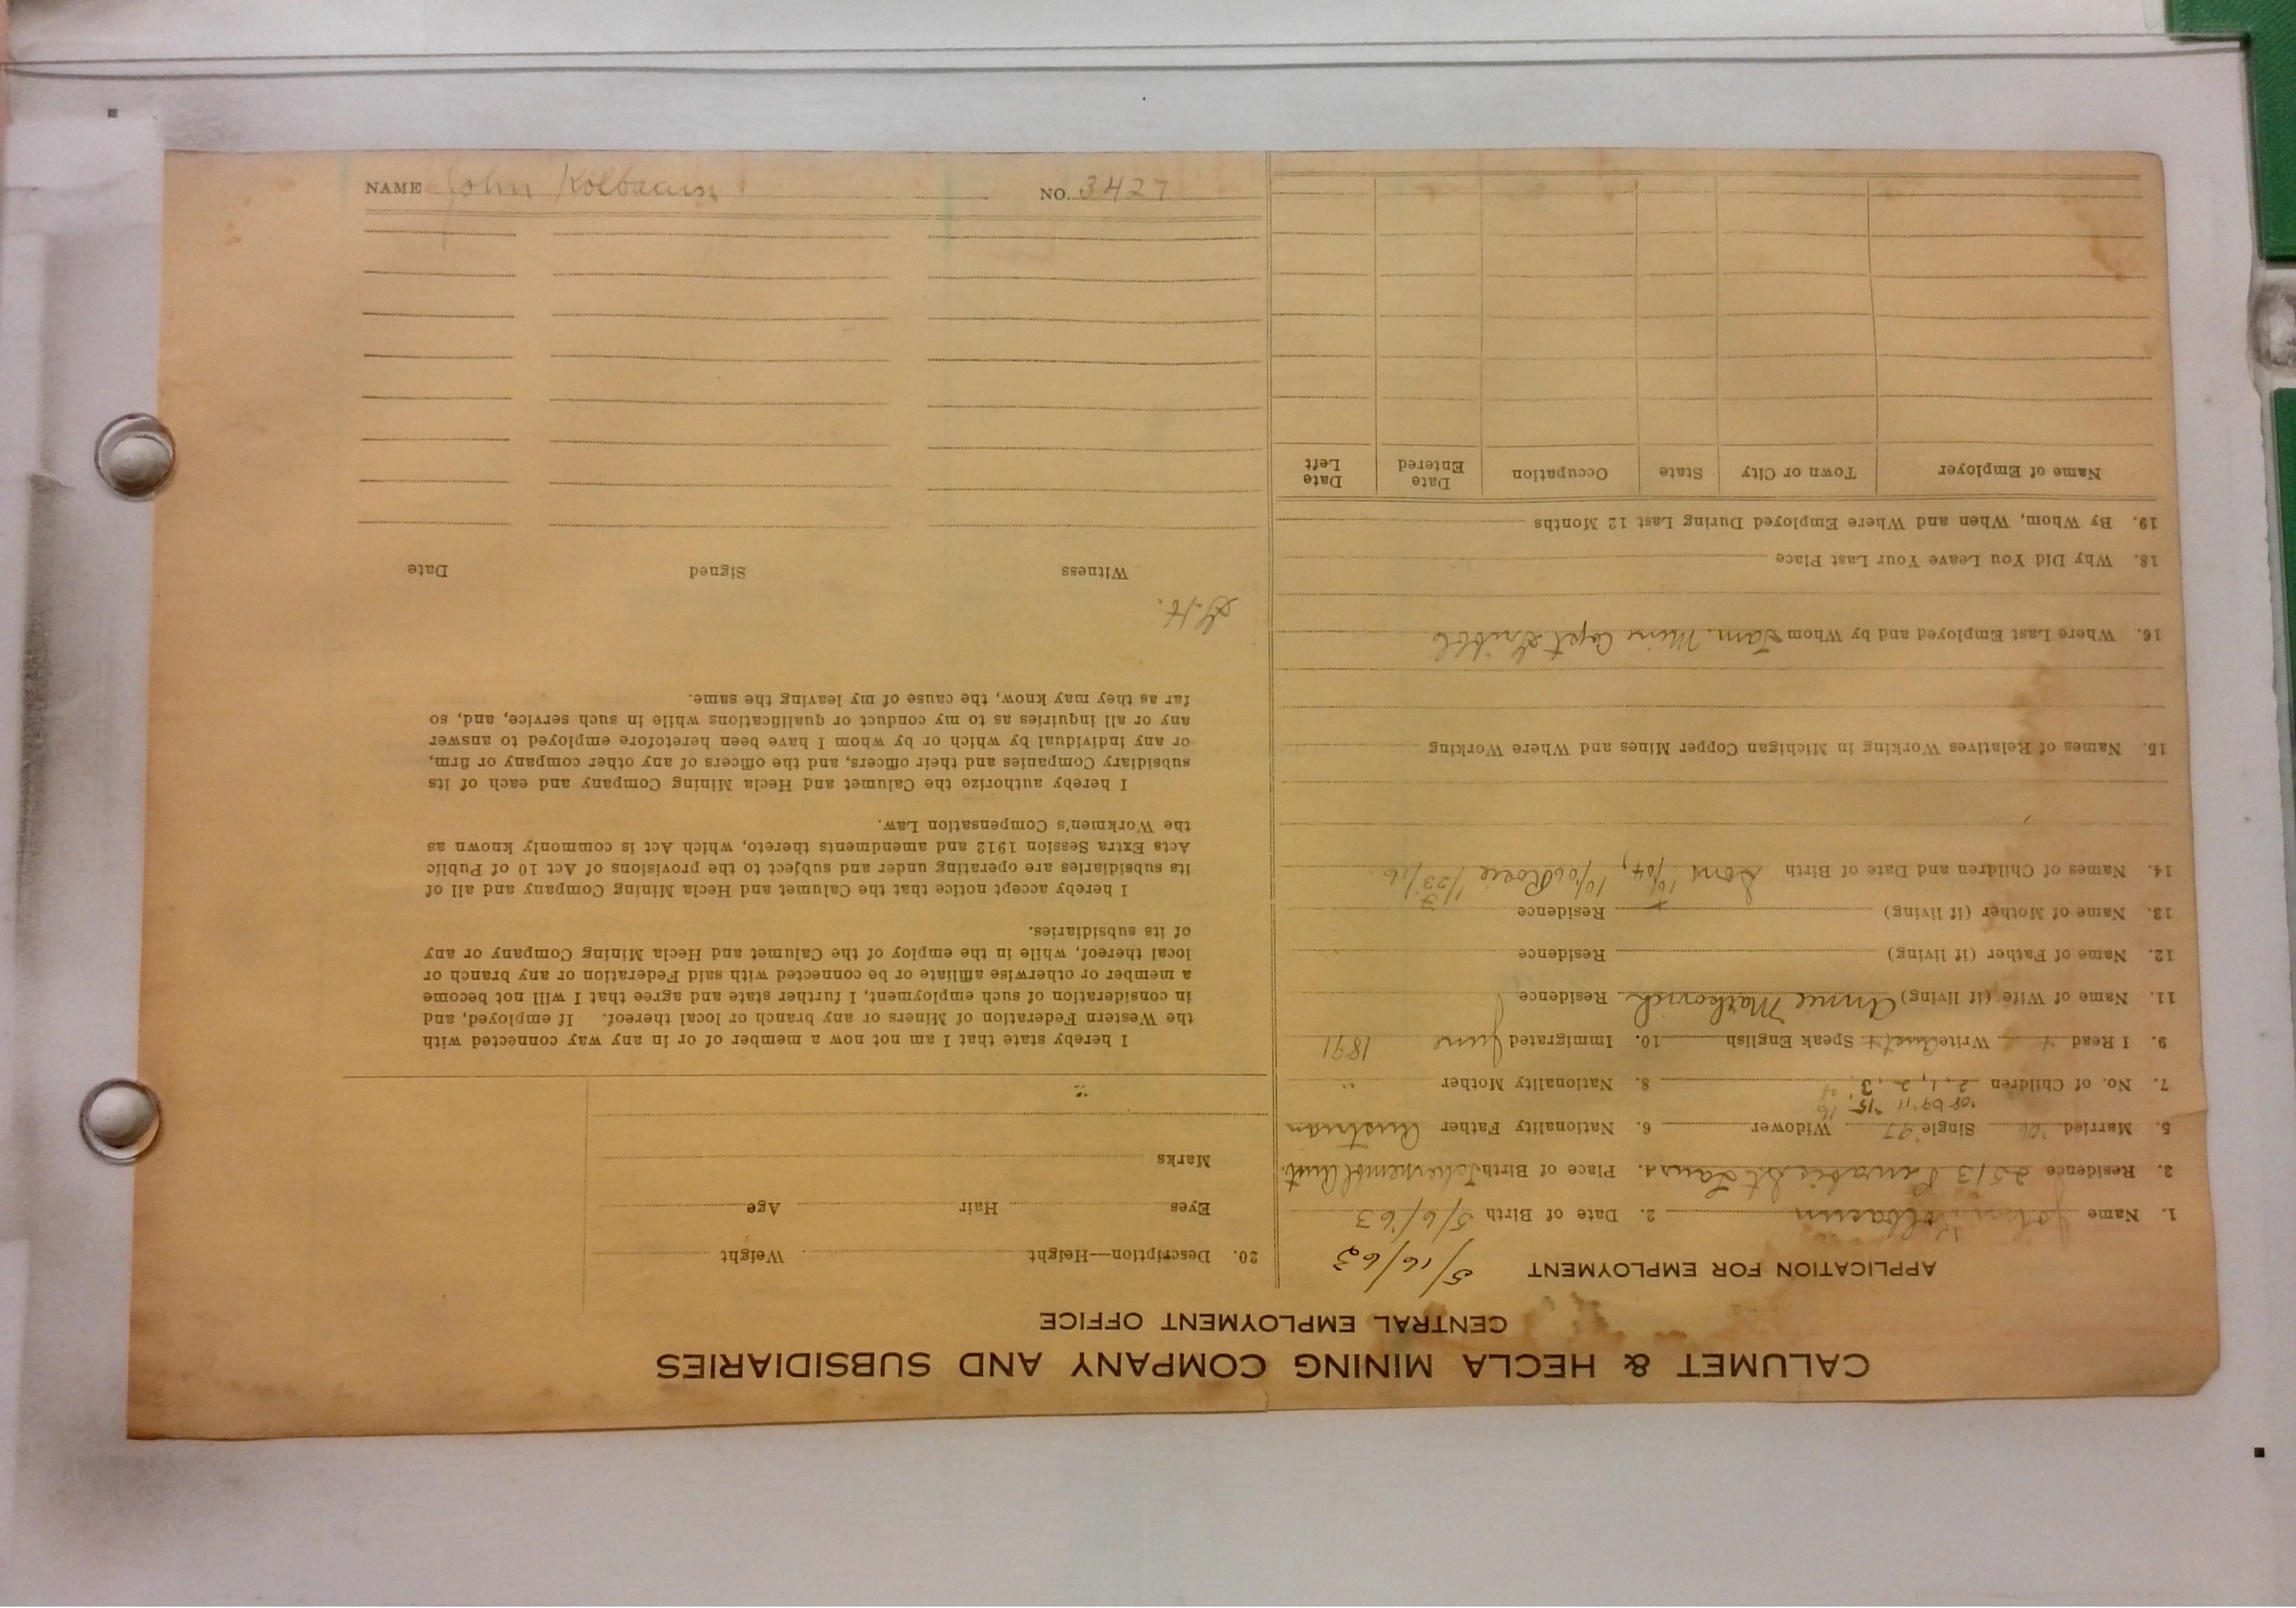 NAME John Kolbacun NO. 3427
CALUMET & HECLA MINING COMPANY AND SUBSIDIARIES
CENTRAL EMPLOYMENT OFFICE
APPLICATION FOR EMPLOYMENT 5/16/63
1. Name John 2. Date of Birth 5/6/63
3. Residence 2513 St. 4. Place of Birth Aust.
5. Married '06 Single '97 Widower 6. Nationality Father Austrian
'08 '09 '11 '15 16
7. No. of Children 2, 1, 2, 3, 4 8. Nationality Mother "
9. I Read + Write Aust + Speak English 10. Immigrated June 1891
11. Name of Wife (if living) Annie Malkovich Residence
12. Name of Father (if living) Residence
13. Name of Mother (if living) Residence
14. Names of Children and Date of Birth Rosie 1/23/16
15. Names of Relatives Working in Michigan Copper Mines and Where Working
16. Where Last Employed and by Whom Tam. Mine Capt
18. Why Did You Leave Your Last Place
19. By Whom, When and Where Employed During Last 12 Months
Name of Employer Town or City State Occupation Date Entered Date Left
20. Description—Height Weight
Eyes Hair Age
Marks
"
I hereby state that I am not now a member of or in any way connected with
the Western Federation of Miners or any branch or local thereof. If employed, and
in consideration of such employment, I further state and agree that I will not become
a member or otherwise affiliate or be connected with said Federation or any branch or
local thereof, while in the employ of the Calumet and Hecla Mining Company or any
of its subsidiaries.
I hereby accept notice that the Calumet and Hecla Mining Company and all of
its subsidiaries are operating under and subject to the provisions of Act 10 of Public
Acts Extra Session 1912 and amendments thereto, which Act is commonly known as
the Workmen's Compensation Law.
I hereby authorize the Calumet and Hecla Mining Company and each of its
subsidiary Companies and their officers, and the officers of any other company or firm,
or any individual by which or by whom I have been heretofore employed to answer
any or all inquiries as to my conduct or qualifications while in such service, and, so
far as they may know, the cause of my leaving the same.
Witness Signed Date